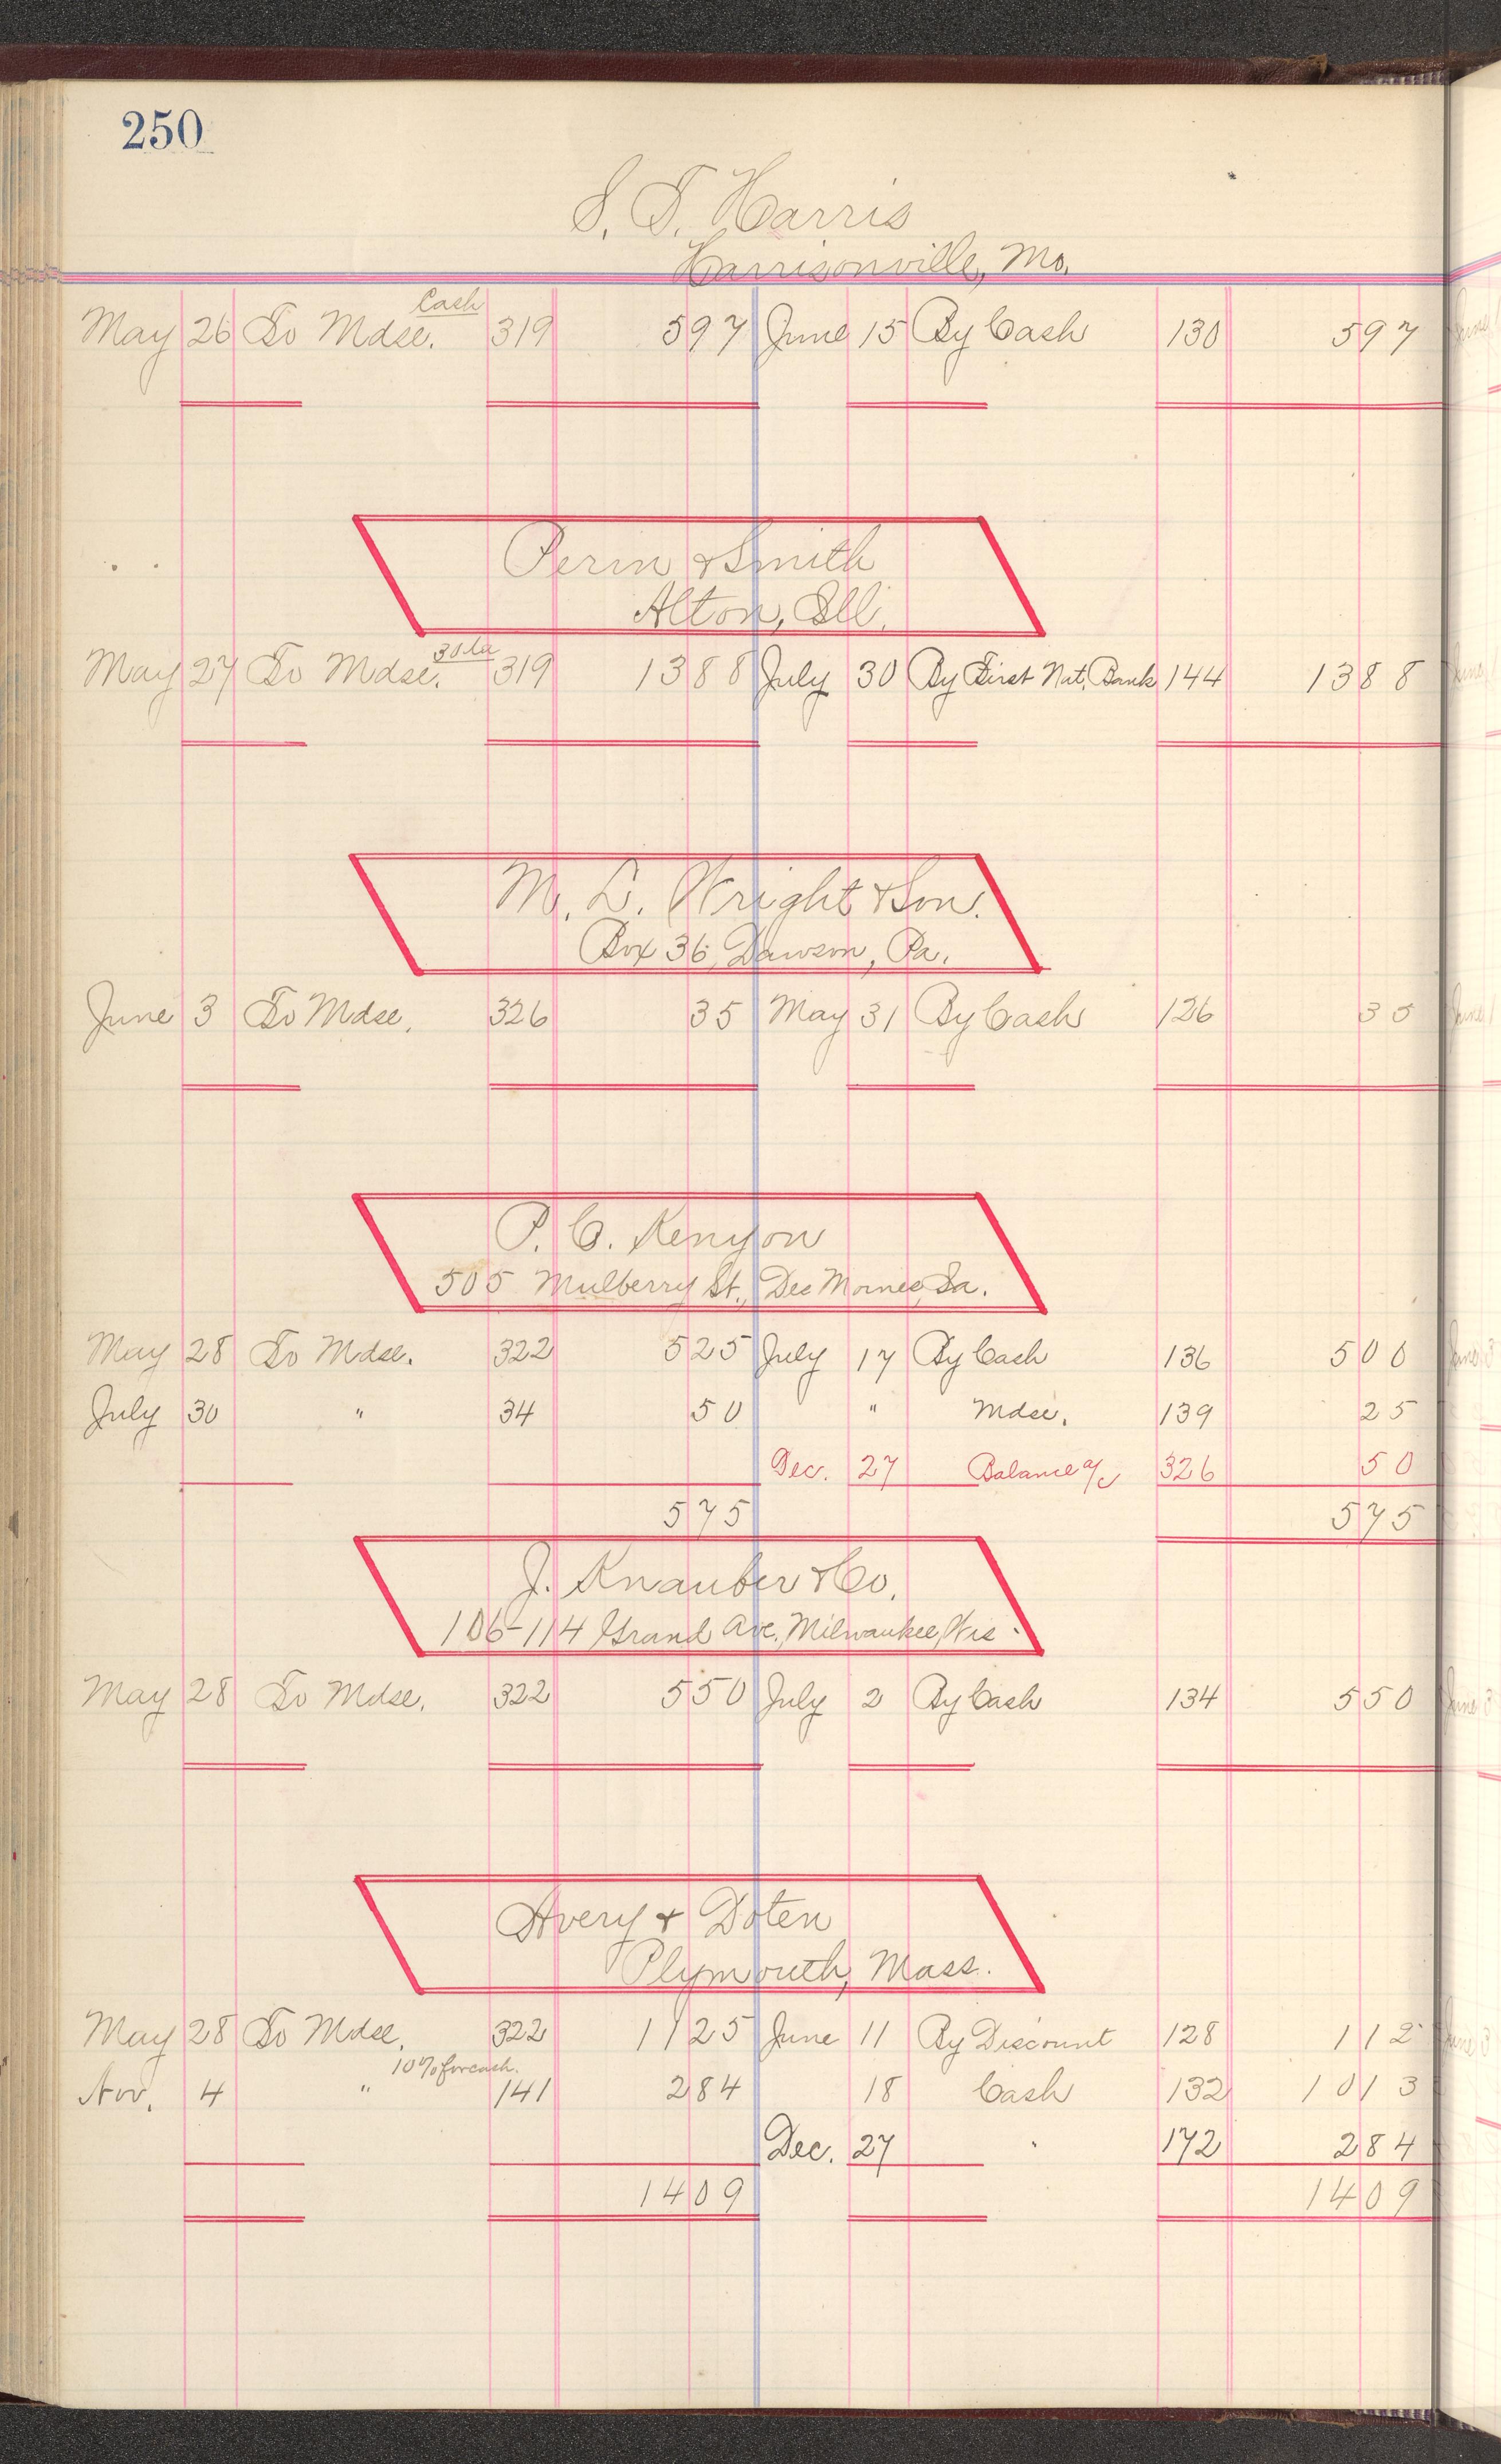 250
S. T. Harris
Harrisonville, Mo.
Cash
May 26 To Mdse. 319 597 June 15 By Cash 130 597
Perin & Smith
Alton, Ill.
May 27 To Mdse. 319 1388 July 30 By First Nat. Bank 144 1388
M. L. Wright & Son.
Box 36, Dawson, Pa.
June 3 To Mdse. 326 35 May 31 By Cash 126 35
P. C. Kenyon
505 Mulberry St., Des Moines, Ia.
May 28 To Mdse. 322 525 July 17 By Cash 136 500
July 30 " 34 50 " Mdse. 139 25
Dec. 27 Balance a/c 326 50
575 575
J. Knauber & Co.
106-114 Grand Ave., Milwaukee, Wis.
May 28 To Mdse. 322 550 July 2 By Cash 134 550
Avery & Doten
Plymouth, Mass.
May 28 To Mdse. 322 1125 June 11 By Discount 128 112
10% for cash.
Nov. 4 " 141 284 18 Cash 132 1013
Dec. 27 " 172 284
1409 1409